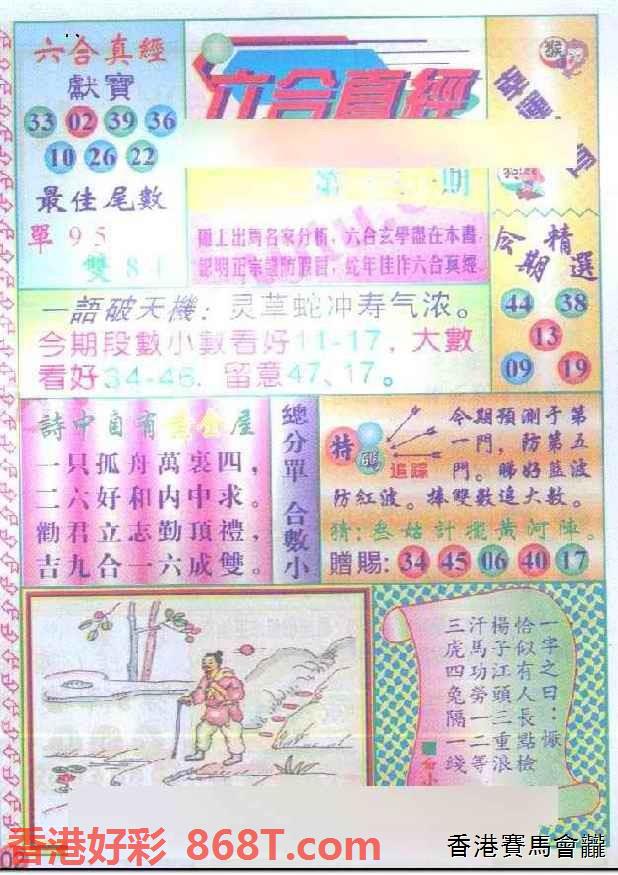 六合真經
獻寶
33 02 39 36
10 26 22
最佳尾數
單 9 5
雙 8
六合真經
第 期
猴
今期
精選
44 38
13
09 19
六合玄學盡在本書
蛇年佳作六合真經
一語破天機：灵草蛇冲寿气浓。
今期段數小數看好11-17，大數
看好34-46，留意47、17。
詩中自有黃金屋
一只孤舟萬裏四，
二六好和内中求。
勸君立志勤頂禮，
吉九合一六成雙。
總分單 合數小
特碼
追踪
今期預測于第
一門，防第五
門。睇好藍波
防紅波。捧雙數追大數。
猜：叁姑計擺黃河陣。
贈賜：34 45 06 40 17
一字之曰：慨
恰似有人長點檢
楊子江頭二重浪
汗馬功勞一二等
三虎四兔隔一綫
香港好彩 868T.com
香港賽馬會